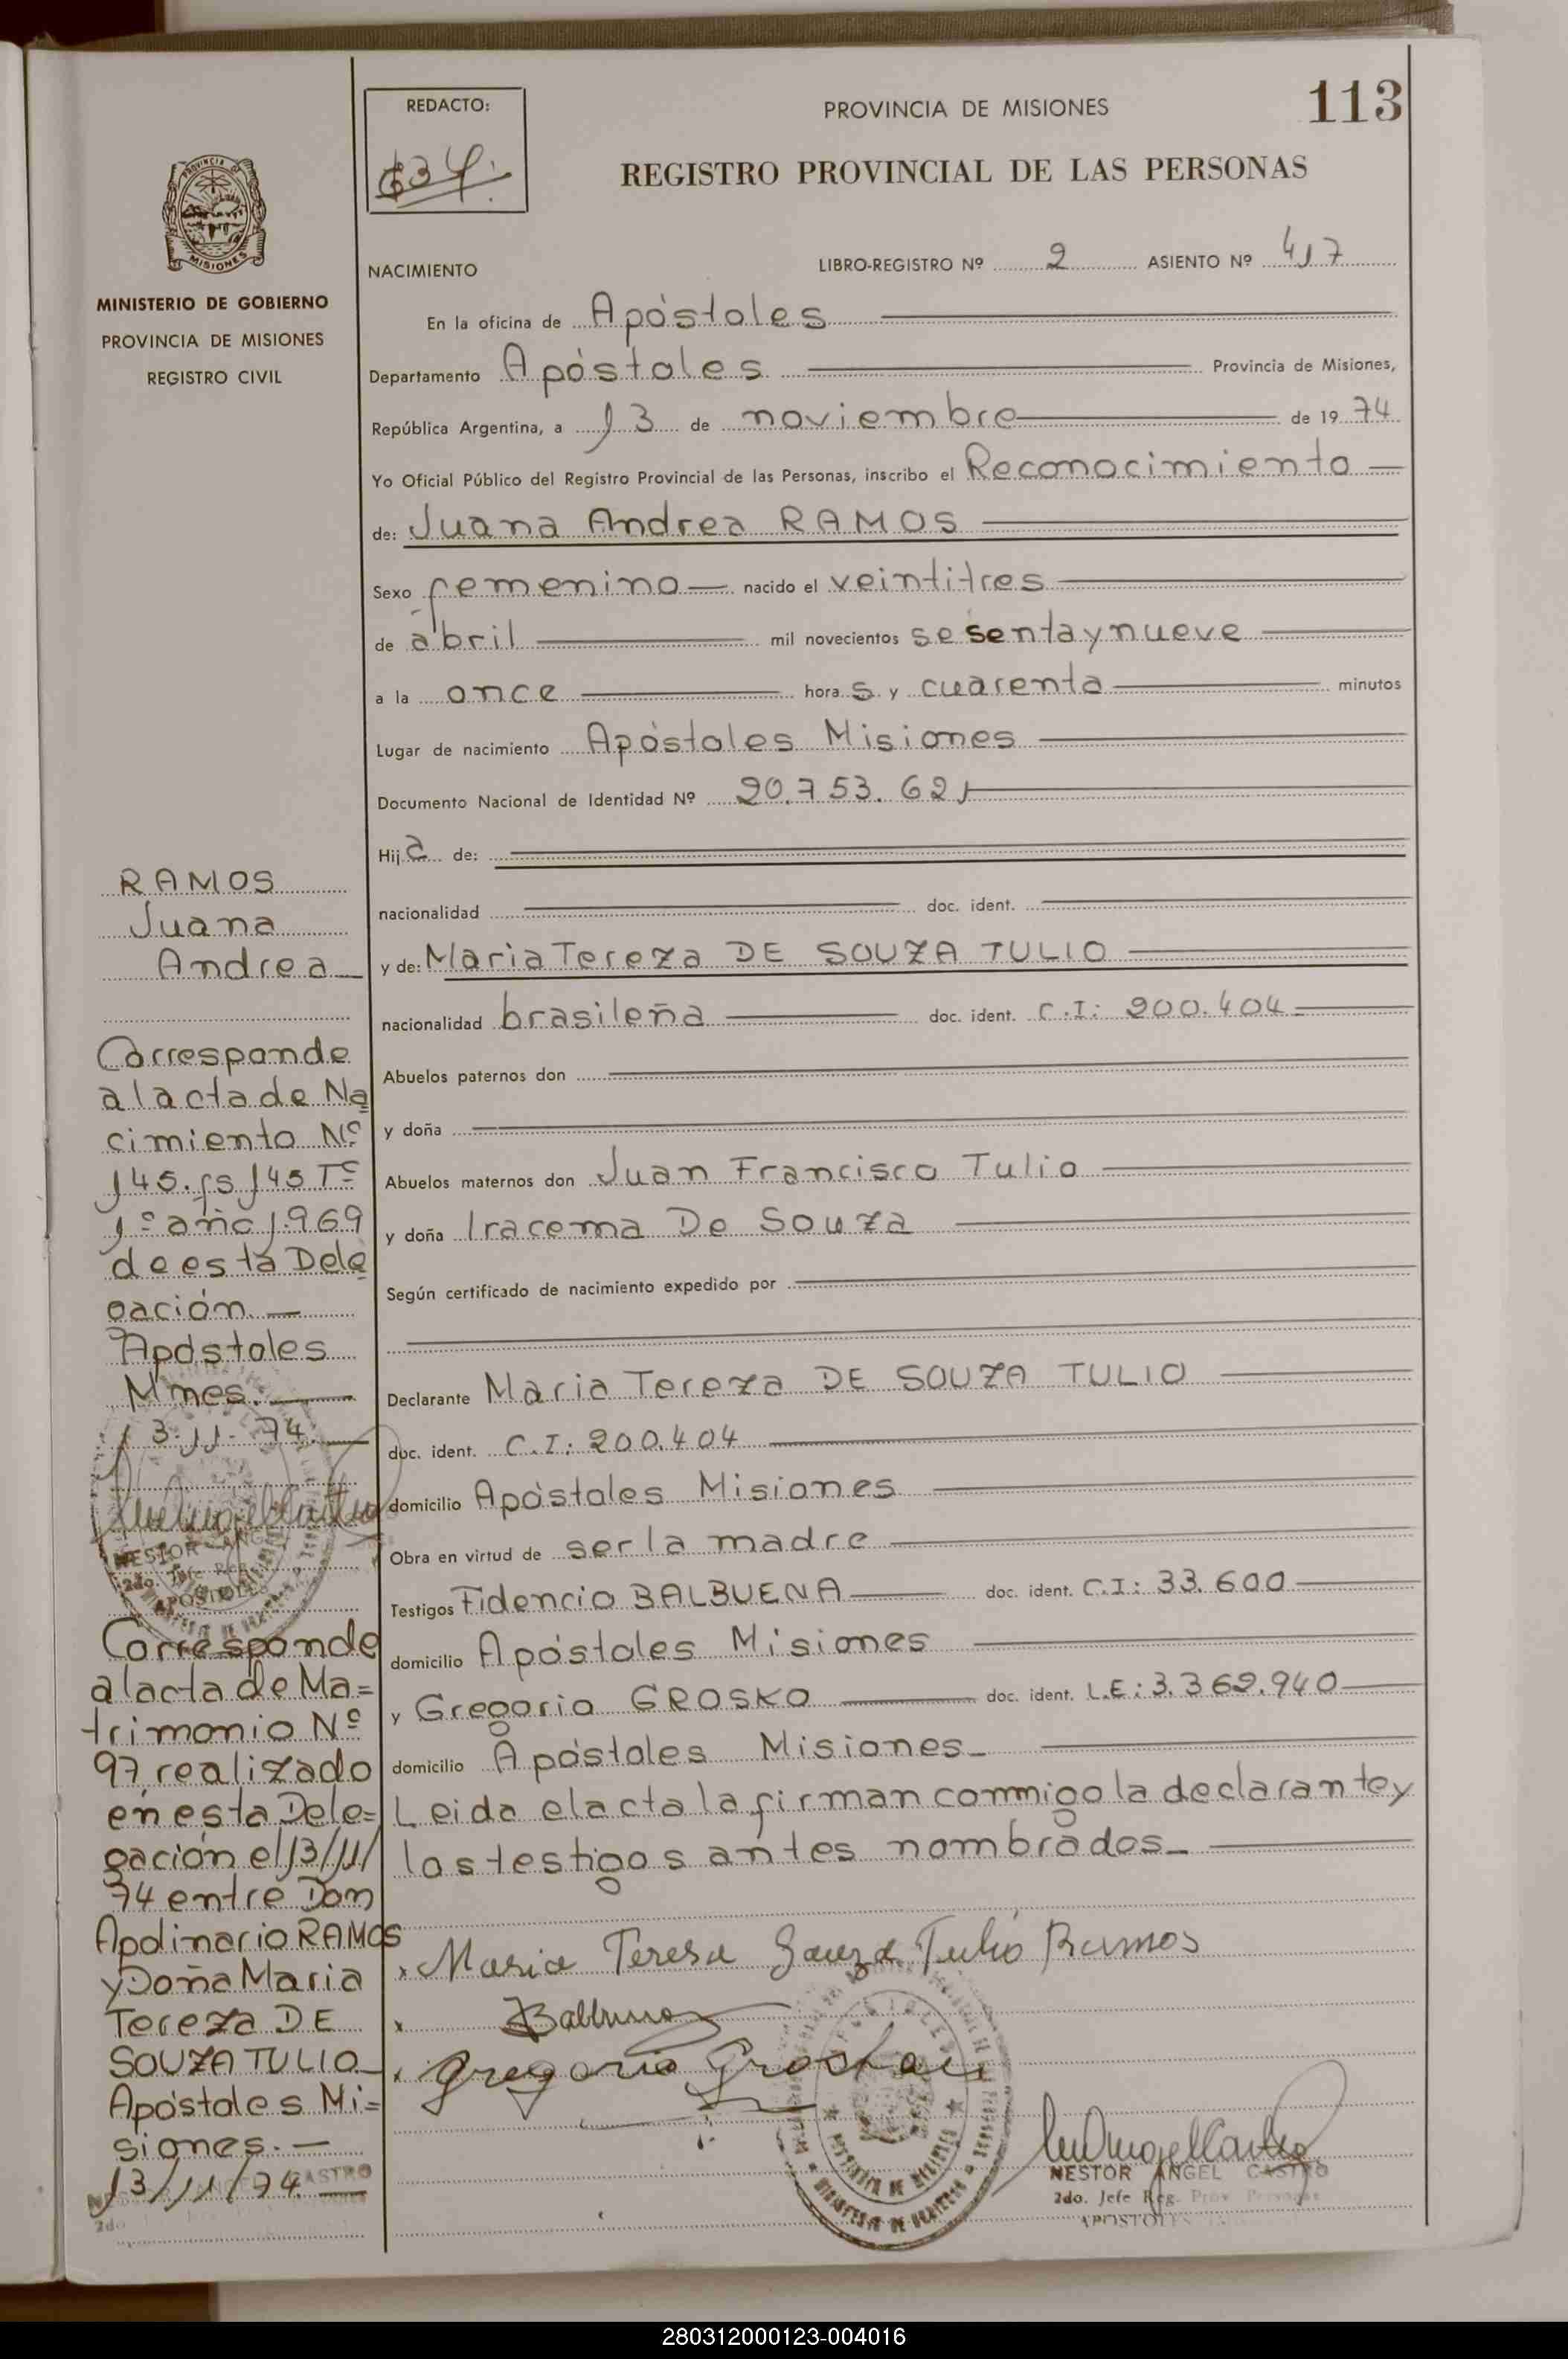 113
REDACTO:
PROVINCIA DE MISIONES
REGISTRO PROVINCIAL DE LAS PERSONAS
PROVINCIA DE
MISIONES
MINISTERIO DE GOBIERNO
PROVINCIA DE MISIONES
REGISTRO CIVIL
NACIMIENTO
LIBRO-REGISTRO Nº 2 ASIENTO Nº 417
En la oficina de Apóstoles
Departamento Apóstoles Provincia de Misiones,
República Argentina, a 13 de noviembre de 1974
Yo Oficial Público del Registro Provincial de las Personas, inscribo el Reconocimiento
de: Juana Andrea RAMOS
Sexo femenino nacido el veintitres
de abril mil novecientos sesenta y nueve
a la once horas y cuarenta minutos
Lugar de nacimiento Apóstoles Misiones
Documento Nacional de Identidad Nº 20.753.621
Hija de:
nacionalidad doc. ident.
y de: Maria Tereza DE SOUZA TULIO
nacionalidad brasileña doc. ident. C.I: 200.404
Abuelos paternos don
y doña
Abuelos maternos don Juan Francisco Tulio
y doña Iracema De Souza
Según certificado de nacimiento expedido por
Declarante Maria Tereza DE SOUZA TULIO
doc. ident. C.I: 200.404
domicilio Apóstoles Misiones
Obra en virtud de ser la madre
Testigos Fidencio BALBUENA doc. ident. C.I: 33.600
domicilio Apóstoles Misiones
y Gregorio GROSKO doc. ident. L.E: 3.362.940
domicilio Apóstoles Misiones
Leida el acta la firman conmigo la declarante y
los testigos antes nombrados
Maria Teresa Souza Tulio Ramos
Balbuena
NESTOR ANGEL CASTRO
2do. Jefe Reg. Prov. Personas
APOSTOLES
RAMOS
Juana
Andrea
Corresponde
al acta de Na
cimiento Nº
145. fs 145 Tº
1º año 1969
de esta Dele
gación.
Apóstoles
Mnes.
13-11-74
NESTOR ANGEL
2do. Jefe Reg.
APOSTOLES
Corresponde
al acta de Ma=
trimonio Nº
97 realizado
en esta Dele=
gación el 13/11/
74 entre Don
Apolinario RAMOS
y Doña Maria
Tereza DE
SOUZA TULIO
Apóstoles Mi=
siones.
13/11/74
CASTRO
2do
280312000123-004016